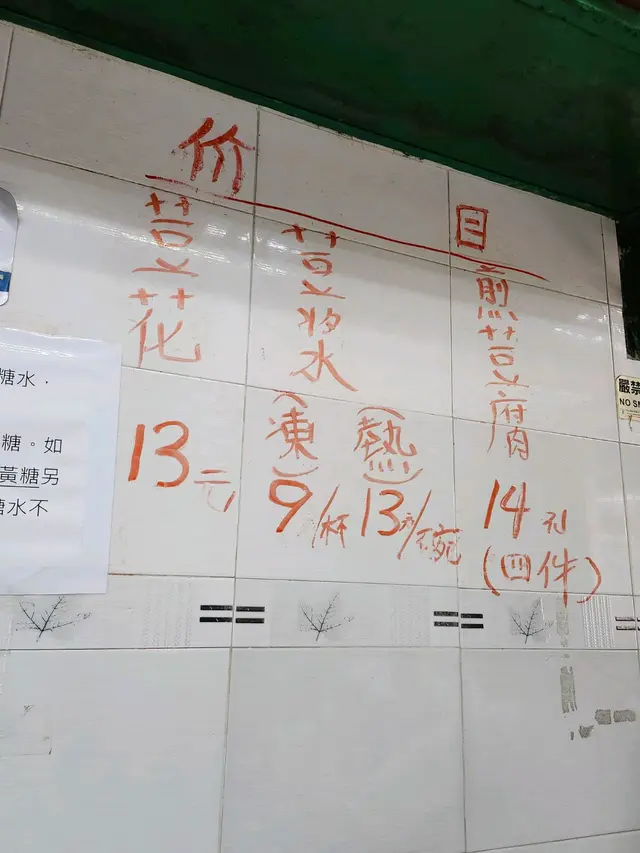 价目
荳花
13元
荳漿水
(凍) (熱)
9/杯 13元/碗
煎荳腐
14元
(四件)
糖水，
糖。如
黃糖另
糖水不
嚴禁
NO SM